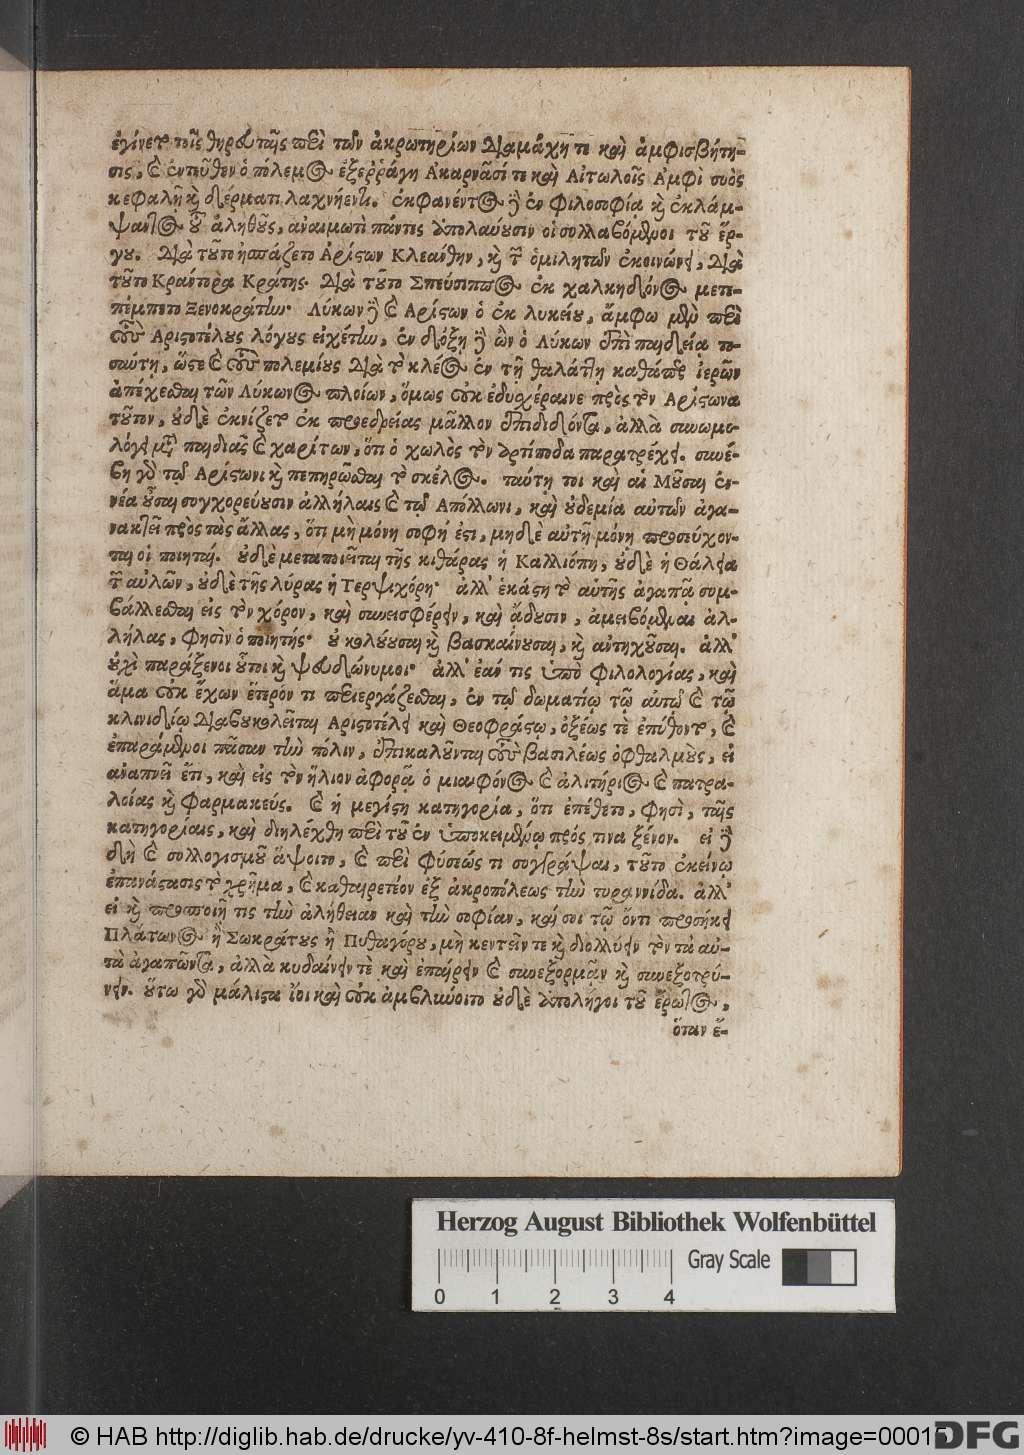 ἐγίνετο τοῖς θηρευταῖς περὶ τῶν ἀκρωτηρίων διαμάχη τε καὶ ἀμφισβήτη-
σις, καὶ ἐντεῦθεν ὁ πόλεμος ἐξερράγη Ἀκαρνᾶσί τε καὶ Αἰτωλοῖς Ἀμφὶ συὸς
κεφαλῇ καὶ δέρματι λαχνήεντι. ἐκφανέντος δὲ ἐν φιλοσοφίᾳ καὶ ἐκλάμ-
ψαντος τοῦ ἀληθοῦς, ἀναιμωτὶ πάντες ἀπολαύουσιν οἱ συλλαβόμενοι τοῦ ἔρ-
γου. διὰ τοῦτο ἠσπάζετο Ἀρίστων Κλεάνθην, καὶ τῶν ὁμιλητῶν ἐκοινώνει, διὰ
τοῦτο Κράντορα Κράτης. διὰ τοῦτο Σπεύσιππος ἐκ χαλκηδόνος μετε-
πέμπετο Ξενοκράτην. Λύκων δὲ καὶ Ἀρίστων ὁ ἐκ λυκείου, ἄμφω μὲν περὶ
τοὺς Ἀριστοτέλους λόγους εἰχέτην, ἐν δόξῃ δὲ ὢν ὁ Λύκων ἐπὶ παιδείᾳ το-
σαύτῃ, ὥστε καὶ τοὺς πολεμίους διὰ τὸ κλέος ἐν τῇ θαλάττῃ καθάπερ ἱερῶν
ἀπέχεσθαι τῶν Λύκωνος πλοίων, ὅμως οὐκ ἐδυσχέραινε πρὸς τὸν Ἀρίστωνα
τοῦτον, οὐδὲ ἐκνίζετο ἐκ προεδρείας μᾶλλον ἐπιδιδόντα, ἀλλὰ συνωμο-
λόγει μετὰ παιδιᾶς καὶ χαρίτων, ὅτι ὁ χωλὸς τὸν ἀρτίποδα παρατρέχει. συνέ-
βη γὰρ τῷ Ἀρίστωνι καὶ πεπηρῶσθαι τὸ σκέλος. ταύτῃ τοι καὶ αἱ Μοῦσαι ἐν-
νέα οὖσαι συγχορεύουσιν ἀλλήλαις καὶ τῷ Ἀπόλλωνι, καὶ οὐδεμία αὐτῶν ἀγα-
νακτεῖ πρὸς τὰς ἄλλας, ὅτι μὴ μόνη σοφή ἐστι, μηδὲ αὐτῇ μόνῃ προσεύχον-
ται οἱ ποιηταί. οὐδὲ μεταποιεῖται τῆς κιθάρας ἡ Καλλιόπη, οὐδὲ ἡ Θάλεια
τῶν αὐλῶν, οὐδὲ τῆς λύρας ἡ Τερψιχόρη· ἀλλ' ἑκάστη τὸ αὑτῆς ἀγαπᾷ συμ-
βάλλεσθαι εἰς τὸν χόρον, καὶ συνεισφέρειν, καὶ ᾄδουσιν, ἀμειβόμεναι ἀλ-
λήλας, φησὶν ὁ ποιητής· οὐ κωλύουσαι καὶ βασκαίνουσαι, καὶ αὐτηχοῦσαι. ἀλλ'
οὐχὶ παράξενοι οὗτοι καὶ ψευδώνυμοι· ἀλλ' ἐάν τις ὑπὸ φιλολογίας, καὶ
ἅμα οὐκ ἔχων ἕτερόν τι περιεργάζεσθαι, ἐν τῷ δωματίῳ τῷ αὐτῷ καὶ τῷ
κλινιδίῳ διαβουκολεῖται Ἀριστοτέλει καὶ Θεοφράστῳ, ὀξέως τὲ ἐπύθοντο, καὶ
ἐπαράμενοι πᾶσαν τὴν πόλιν, ἐπικαλοῦνται τοὺς βασιλέως ὀφθαλμοὺς, εἰ
ἀναπνεῖ ἔτι, καὶ εἰς τὸν ἥλιον ἀφορᾷ ὁ μιαιφόνος καὶ ἀλιτήριος καὶ πατρα-
λοίας καὶ φαρμακεύς. καὶ ἡ μεγίστη κατηγορία, ὅτι ἐπέθετο, φησὶ, ταῖς
κατηγορίαις, καὶ διηλέχθη περὶ τοῦ ἐν ὑποκειμένῳ πρός τινα ξένον. εἰ δὲ
δὴ καὶ συλλογισμοῦ ἅψοιτο, καὶ περὶ φύσεώς τι συγγράψαι, τοῦτο ἐκείνῳ
ἐπανάστασις τὸ χρῆμα, καὶ καθαιρετέον ἐξ ἀκροπόλεως τὴν τυραννίδα. ἀλλ'
εἰ καὶ προσποιῇ τις τὴν ἀλήθειαν καὶ τὴν σοφίαν, καί σοι τῷ ὄντι προσήκει
Πλάτωνος ἢ Σωκράτους ἢ Πυθαγόρου, μὴ κεντεῖν τε καὶ διολλύειν τὸν τὰ αὐ-
τὰ ἀγαπῶντα, ἀλλὰ κυδαίνειν τὲ καὶ ἐπαίρειν καὶ συνεξορμᾷν καὶ συνεξοτρύ-
νειν. οὕτω γὰρ μάλιστα ἴοι καὶ οὐκ ἀμβλύοιτο οὐδὲ ἀπολήγοι τοῦ ἔρωτος,
ὅταν ἔ-
Herzog August Bibliothek Wolfenbüttel
Gray Scale
0 1 2 3 4
© HAB http://diglib.hab.de/drucke/yv-410-8f-helmst-8s/start.htm?image=00015
DFG